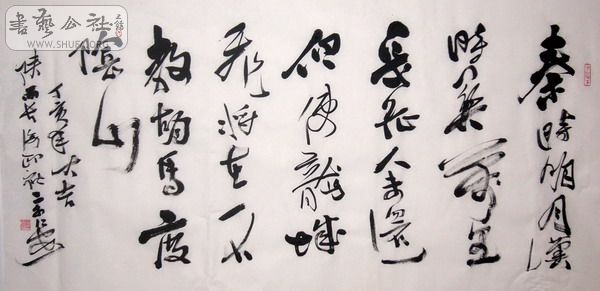 秦時明月漢
時關萬里
長征人未還
但使龍城
飛將在不
教胡馬度
陰山
丁亥年大吉
陝西長
書藝公社
WWW.SHUFA.ORG